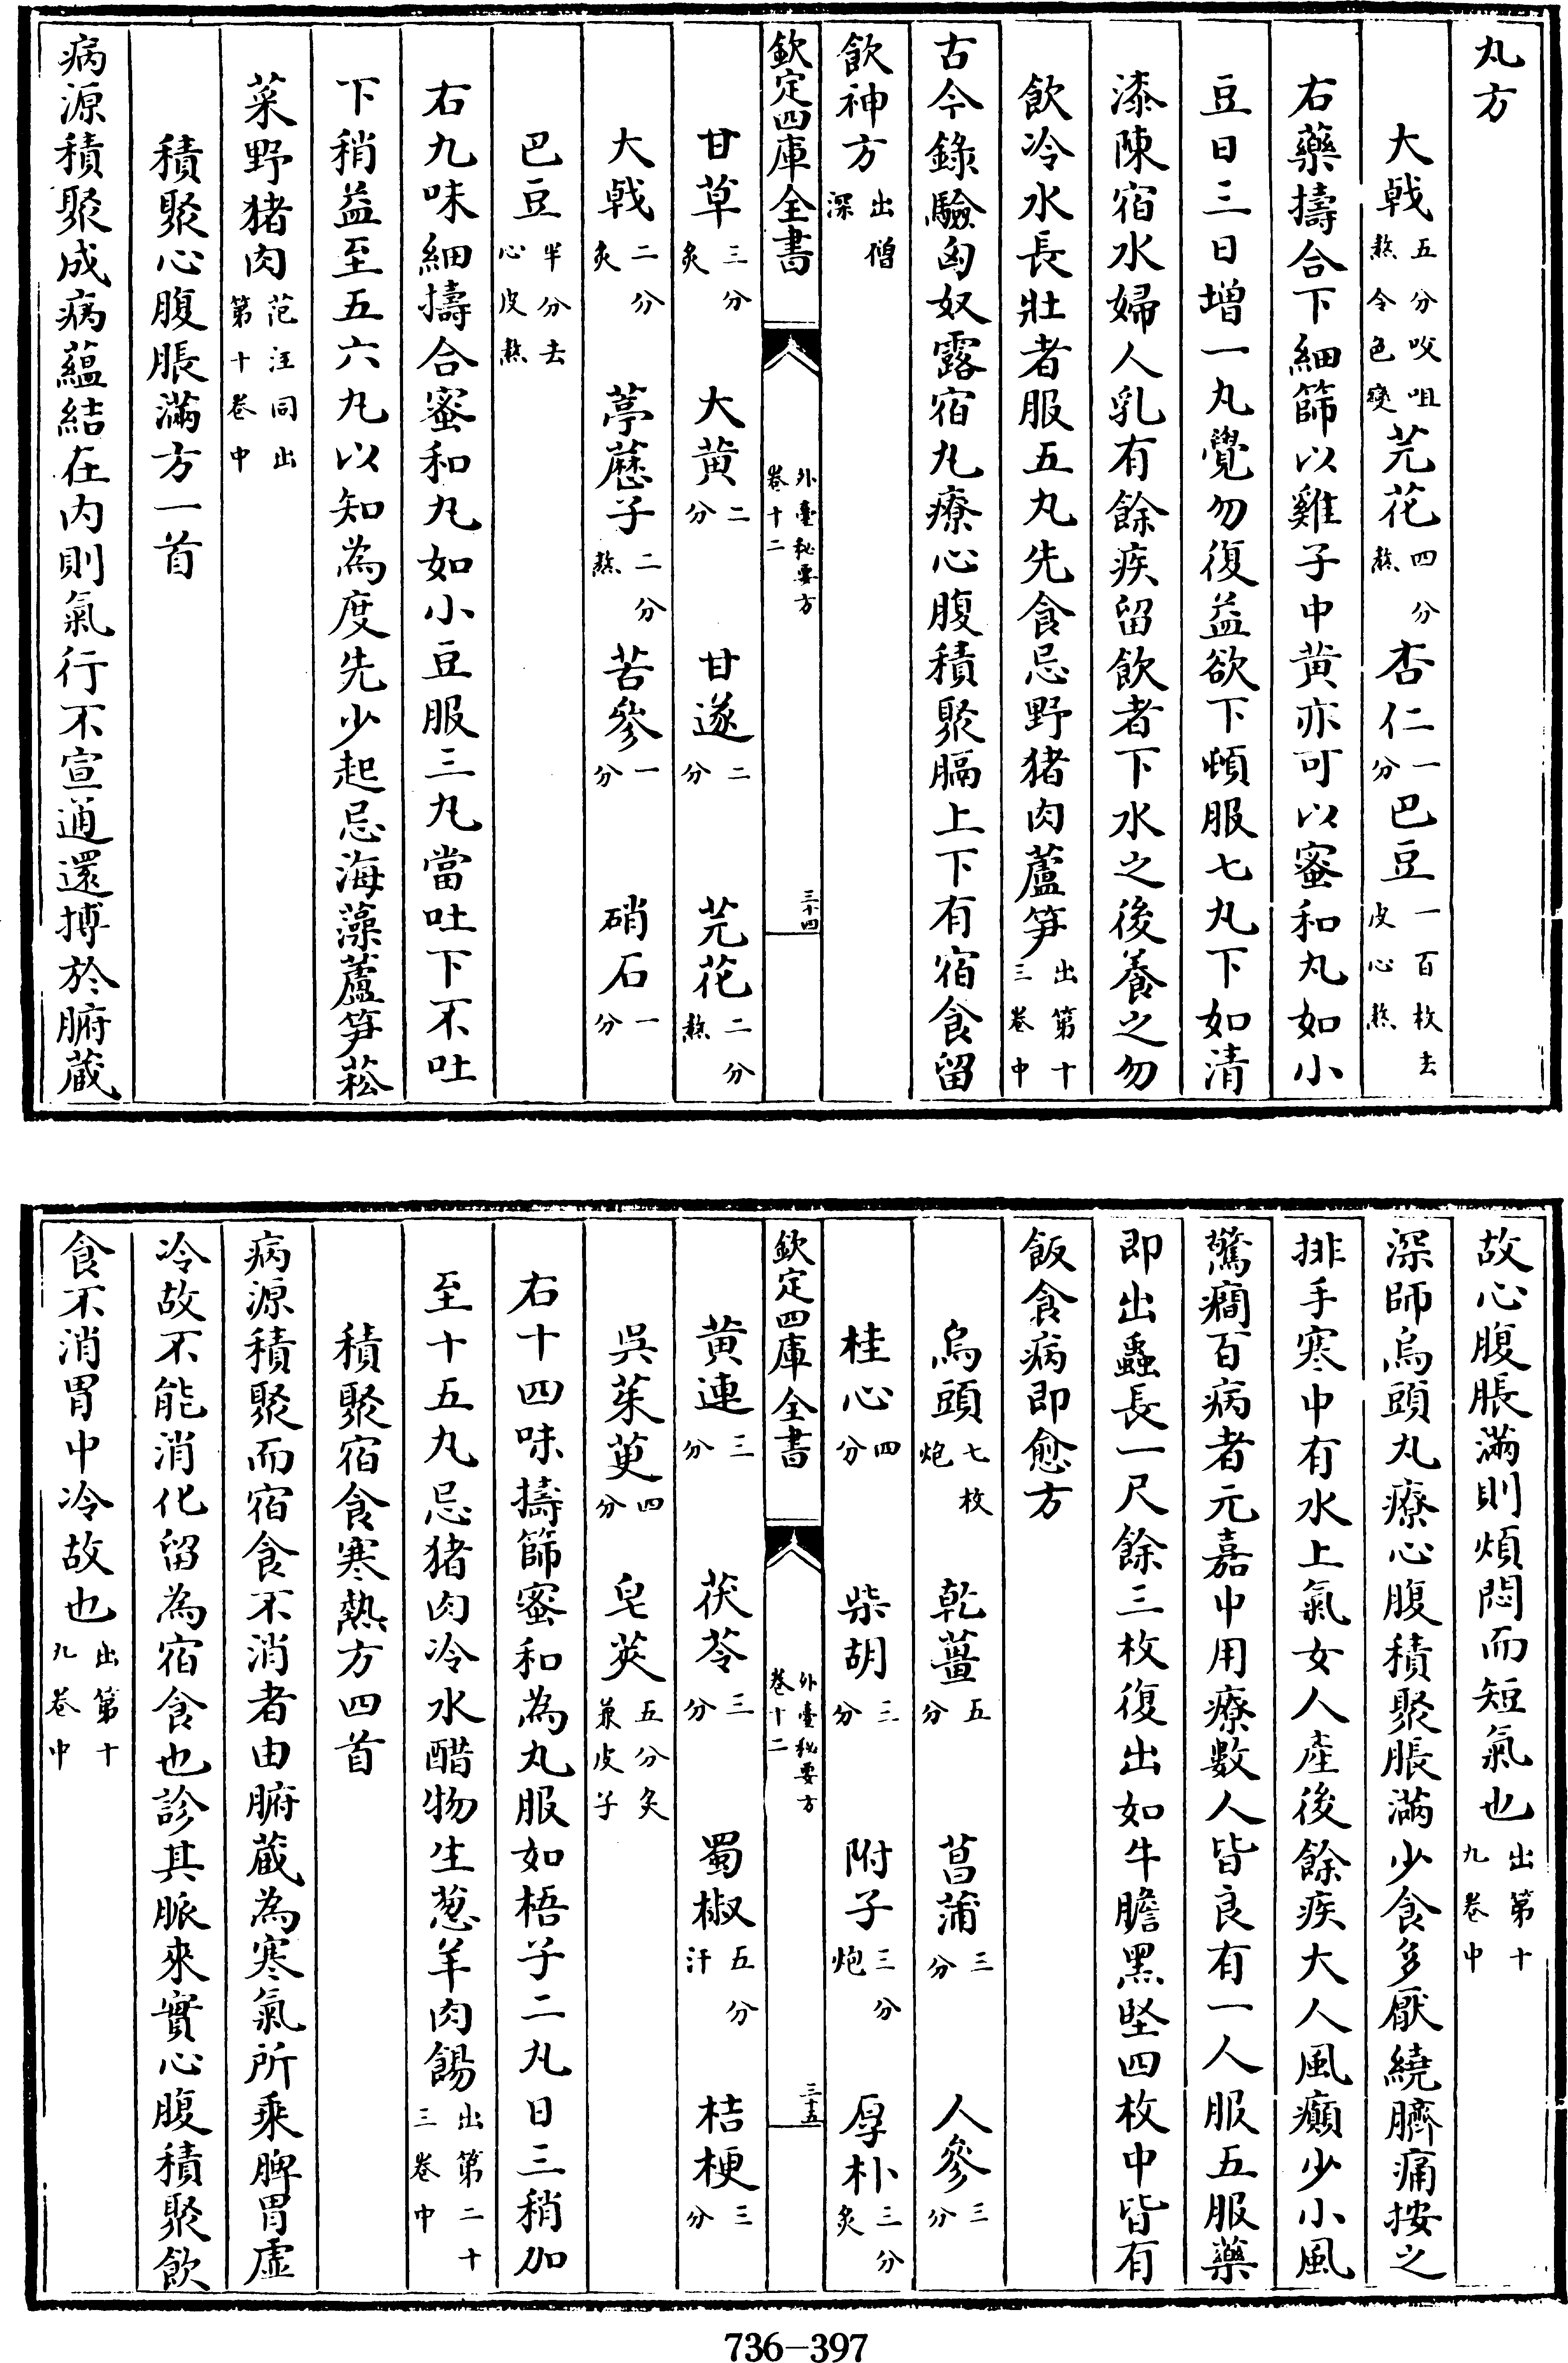 丸方
大戟五分㕮咀熬令色變芫花四分熬杏仁一分巴豆一百枚去皮心熬
右藥擣合下細篩以雞子中黄亦可以蜜和丸如小
豆日三日增一丸覺勿復益欲下頓服七丸下如清
漆陳宿水婦人乳有餘疾留飲者下水之後養之勿
飲冷水長壯者服五丸先食忌野猪肉蘆笋出第十三卷中
古今錄驗匈奴露宿丸療心腹積聚膈上下有宿食留
飲神方出僧深
欽定四庫全書
外臺秘要方卷十二
三十四
甘草三分炙 大黄二分 甘遂二分 芫花二分熬
大戟二分炙 葶藶子二分熬 苦參一分 硝石一分
巴豆半分去心皮熬
右九味細擣合蜜和丸如小豆服三丸當吐下不吐
下稍益至五六丸以知為度先少起忌海藻蘆笋菘
菜野猪肉范汪同出第十卷中
積聚心腹脹滿方一首
病源積聚成病蘊結在内則氣行不宣通還搏於腑藏
故心腹脹滿則煩悶而短氣也出第十九卷中
深師烏頭丸療心腹積聚脹滿少食多厭繞臍痛按之
排手寒中有水上氣女人產後餘疾大人風癲少小風
驚癎百病者元嘉中用療數人皆良有一人服五服藥
即出蟲長一尺餘三枚復出如牛膽黑堅四枚中皆有
飯食病即愈方
烏頭七枚炮 乾薑五分 菖蒲三分 人參三分
桂心四分 柴胡三分 附子三分炮 厚朴三分炙
欽定四庫全書
外臺秘要方卷十二
三十五
黄連三分 茯苓三分 蜀椒五分汗 桔梗三分
吳茱萸四分 皂莢五分炙兼皮子
右十四味擣篩蜜和為丸服如梧子二丸日三稍加
至十五丸忌猪肉冷水醋物生葱羊肉餳出第二十三卷中
積聚宿食寒熱方四首
病源積聚而宿食不消者由腑藏為寒氣所乘脾胃虛
冷故不能消化留為宿食也診其脈來實心腹積聚飲
食不消胃中冷故也出第十九卷中
736-397